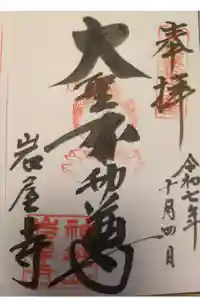 奉拝
令和七年
十月四日
大聖不動尊
岩屋寺